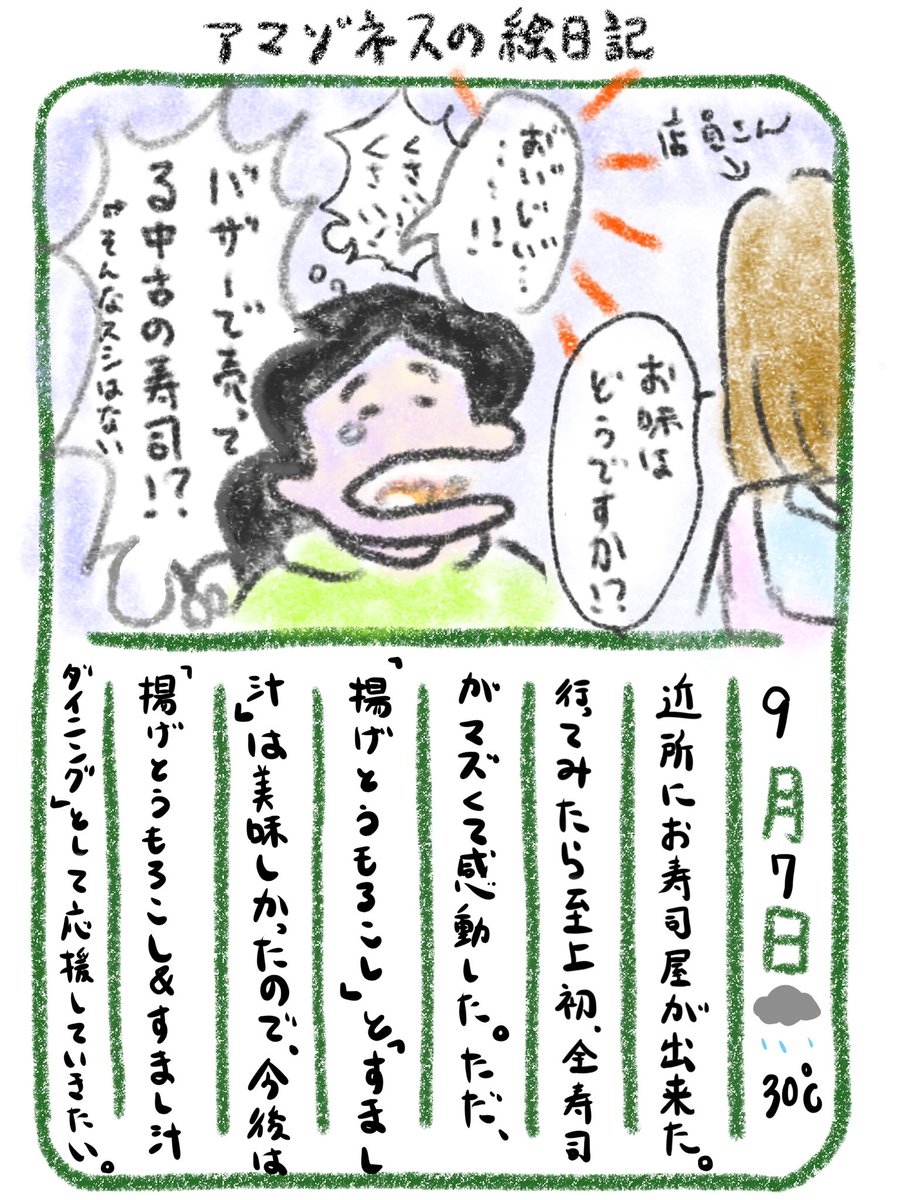 アマゾネスの絵日記
店員さん
お味は
どうですか!?
おいじい…
…!!
くさい!
くさい!
バザーで売って
る中古の寿司!?
そんなスシはない
9月7日
30℃
近所にお寿司屋が出来た。
行ってみたら至上初、全寿司
がマズくて感動した。ただ、
「揚げとうもろこし」と「すまし
汁」は美味しかったので、今後は
「揚げとうもろこし&すまし汁
ダイニング」として応援していきたい。